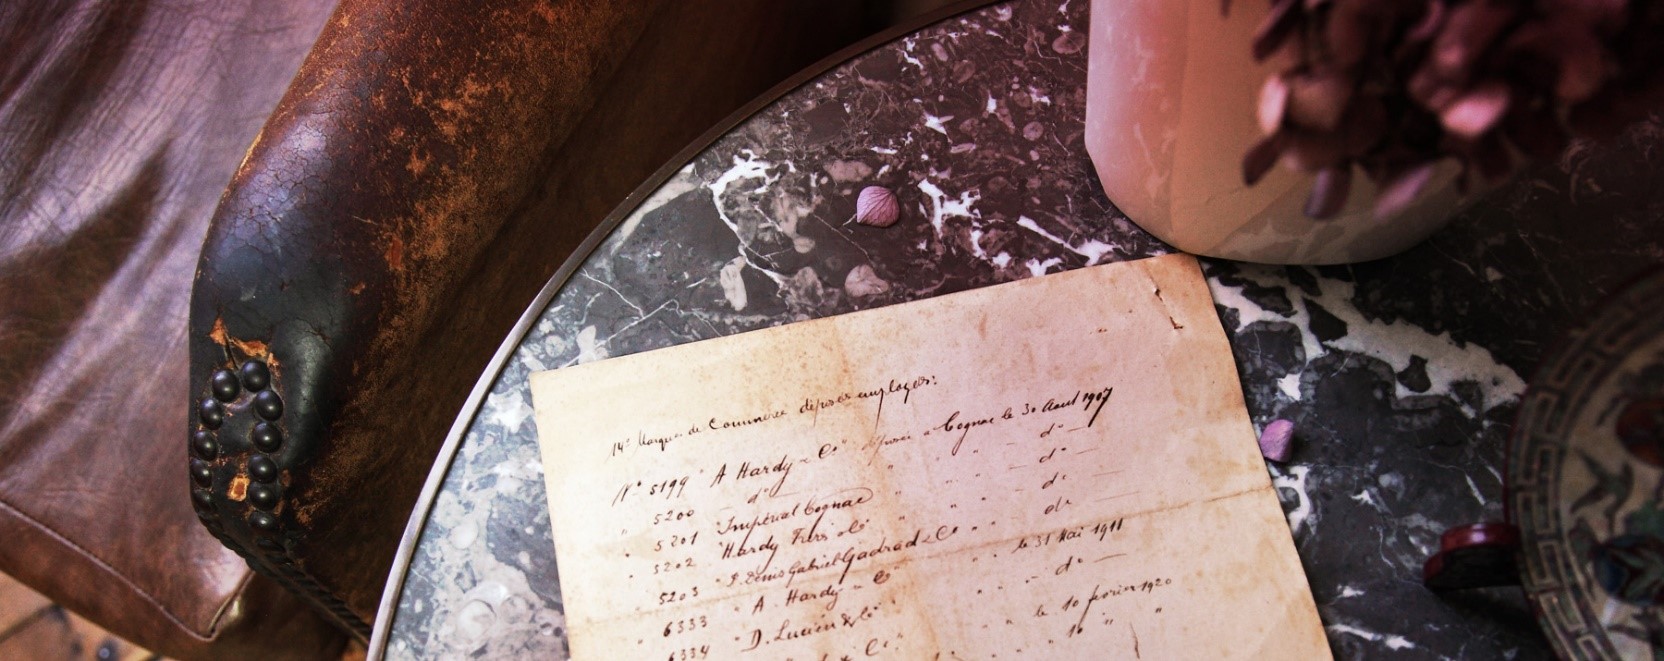 14° Marques de Commerce déposées employées:
N° 5199 " A Hardy & Co" déposée à Cognac le 30 Aout 1907
" 5200 d° " " " d°
" 5201 "Impérial Cognac " " " d°
" 5202 "Hardy Frères & Co " " " d°
" 5203 " P. Denis Gabriel Gadrad & Co " " le 31 Mai 1911
" 6333 " A. Hardy & Co " " d°
" 6334 " D. Lucien & Co " " le 10 février 1920
& Co " " 10 " "